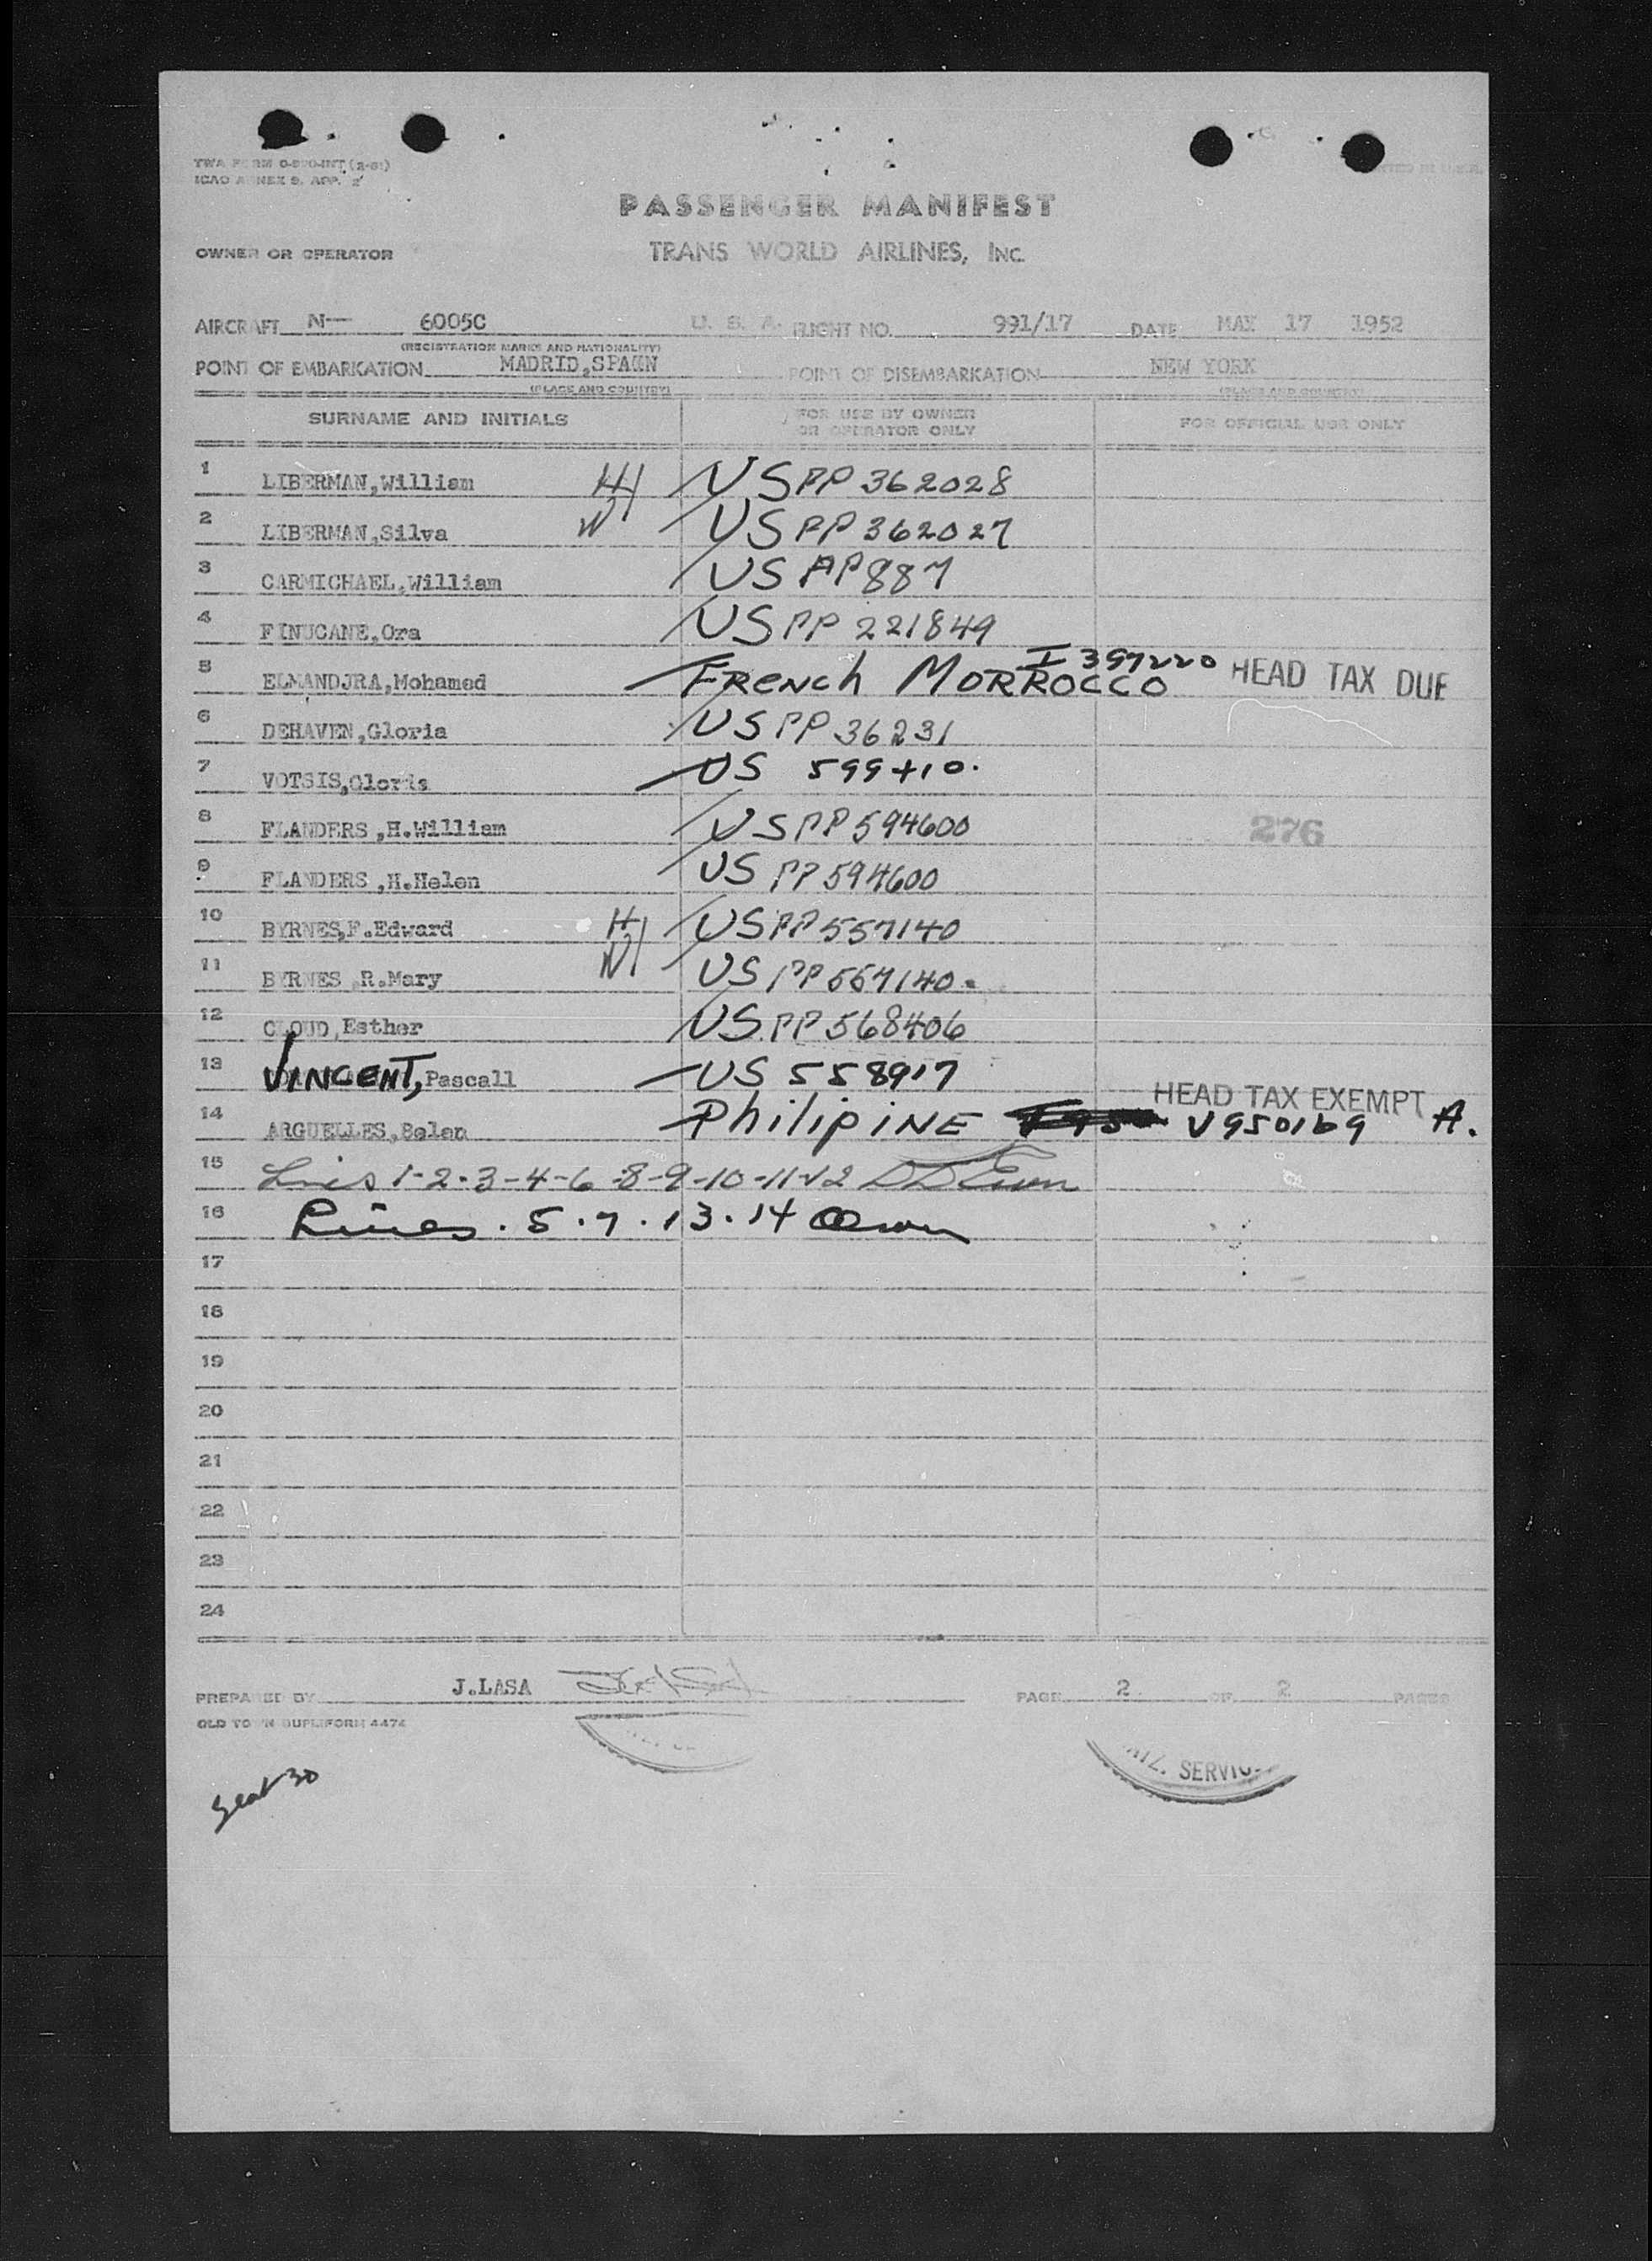 TWA FORM 0-890-INT (2-51)
ICAO ANNEX 9, APP. 2
PASSENGER MANIFEST
OWNER OR OPERATOR TRANS WORLD AIRLINES, INC.
AIRCRAFT N— 6005C U. S. A. FLIGHT NO. 991/17 DATE MAY 17 1952
(REGISTRATION MARKS AND NATIONALITY)
POINT OF EMBARKATION MADRID,SPAIN POINT OF DISEMBARKATION NEW YORK
(PLACE AND COUNTRY) (PLACE AND COUNTRY)
SURNAME AND INITIALS FOR USE BY OWNER OR OPERATOR ONLY FOR OFFICIAL USE ONLY
1 LIBERMAN,William H US PP 362028
2 LIBERMAN,Silva W US PP 362027
3 CARMICHAEL,William US AP887
4 FINUCANE,Ora US PP 221849
5 ELMANDJRA,Mohamed FRENCH MORROCCO I 397220 HEAD TAX DUE
6 DEHAVEN,Gloria US PP 36231
7 VOTSIS,Gloria US 599410.
8 FLANDERS,H.William US PP 594600 276
9 FLANDERS,H.Helen US PP 594600
10 BYRNES,F.Edward H US PP 557140
11 BYRNES,R.Mary W US PP 557140.
12 CLOUD,Esther US PP 568406
13 VINCENT, Pascall US 558917
HEAD TAX EXEMPT
14 ARGUELLES,Belen PhilipiNE V950169 A.
15 Lines 1-2-3-4-6-8-9-10-11-12
16 Lines. 5. 7. 13. 14
17
18
19
20
21
22
23
24
PREPARED BY J.LASA PAGE 2 OF 2 PAGES
OLD TOWN DUPLIFORM 4474
SERVIC
Seat 30